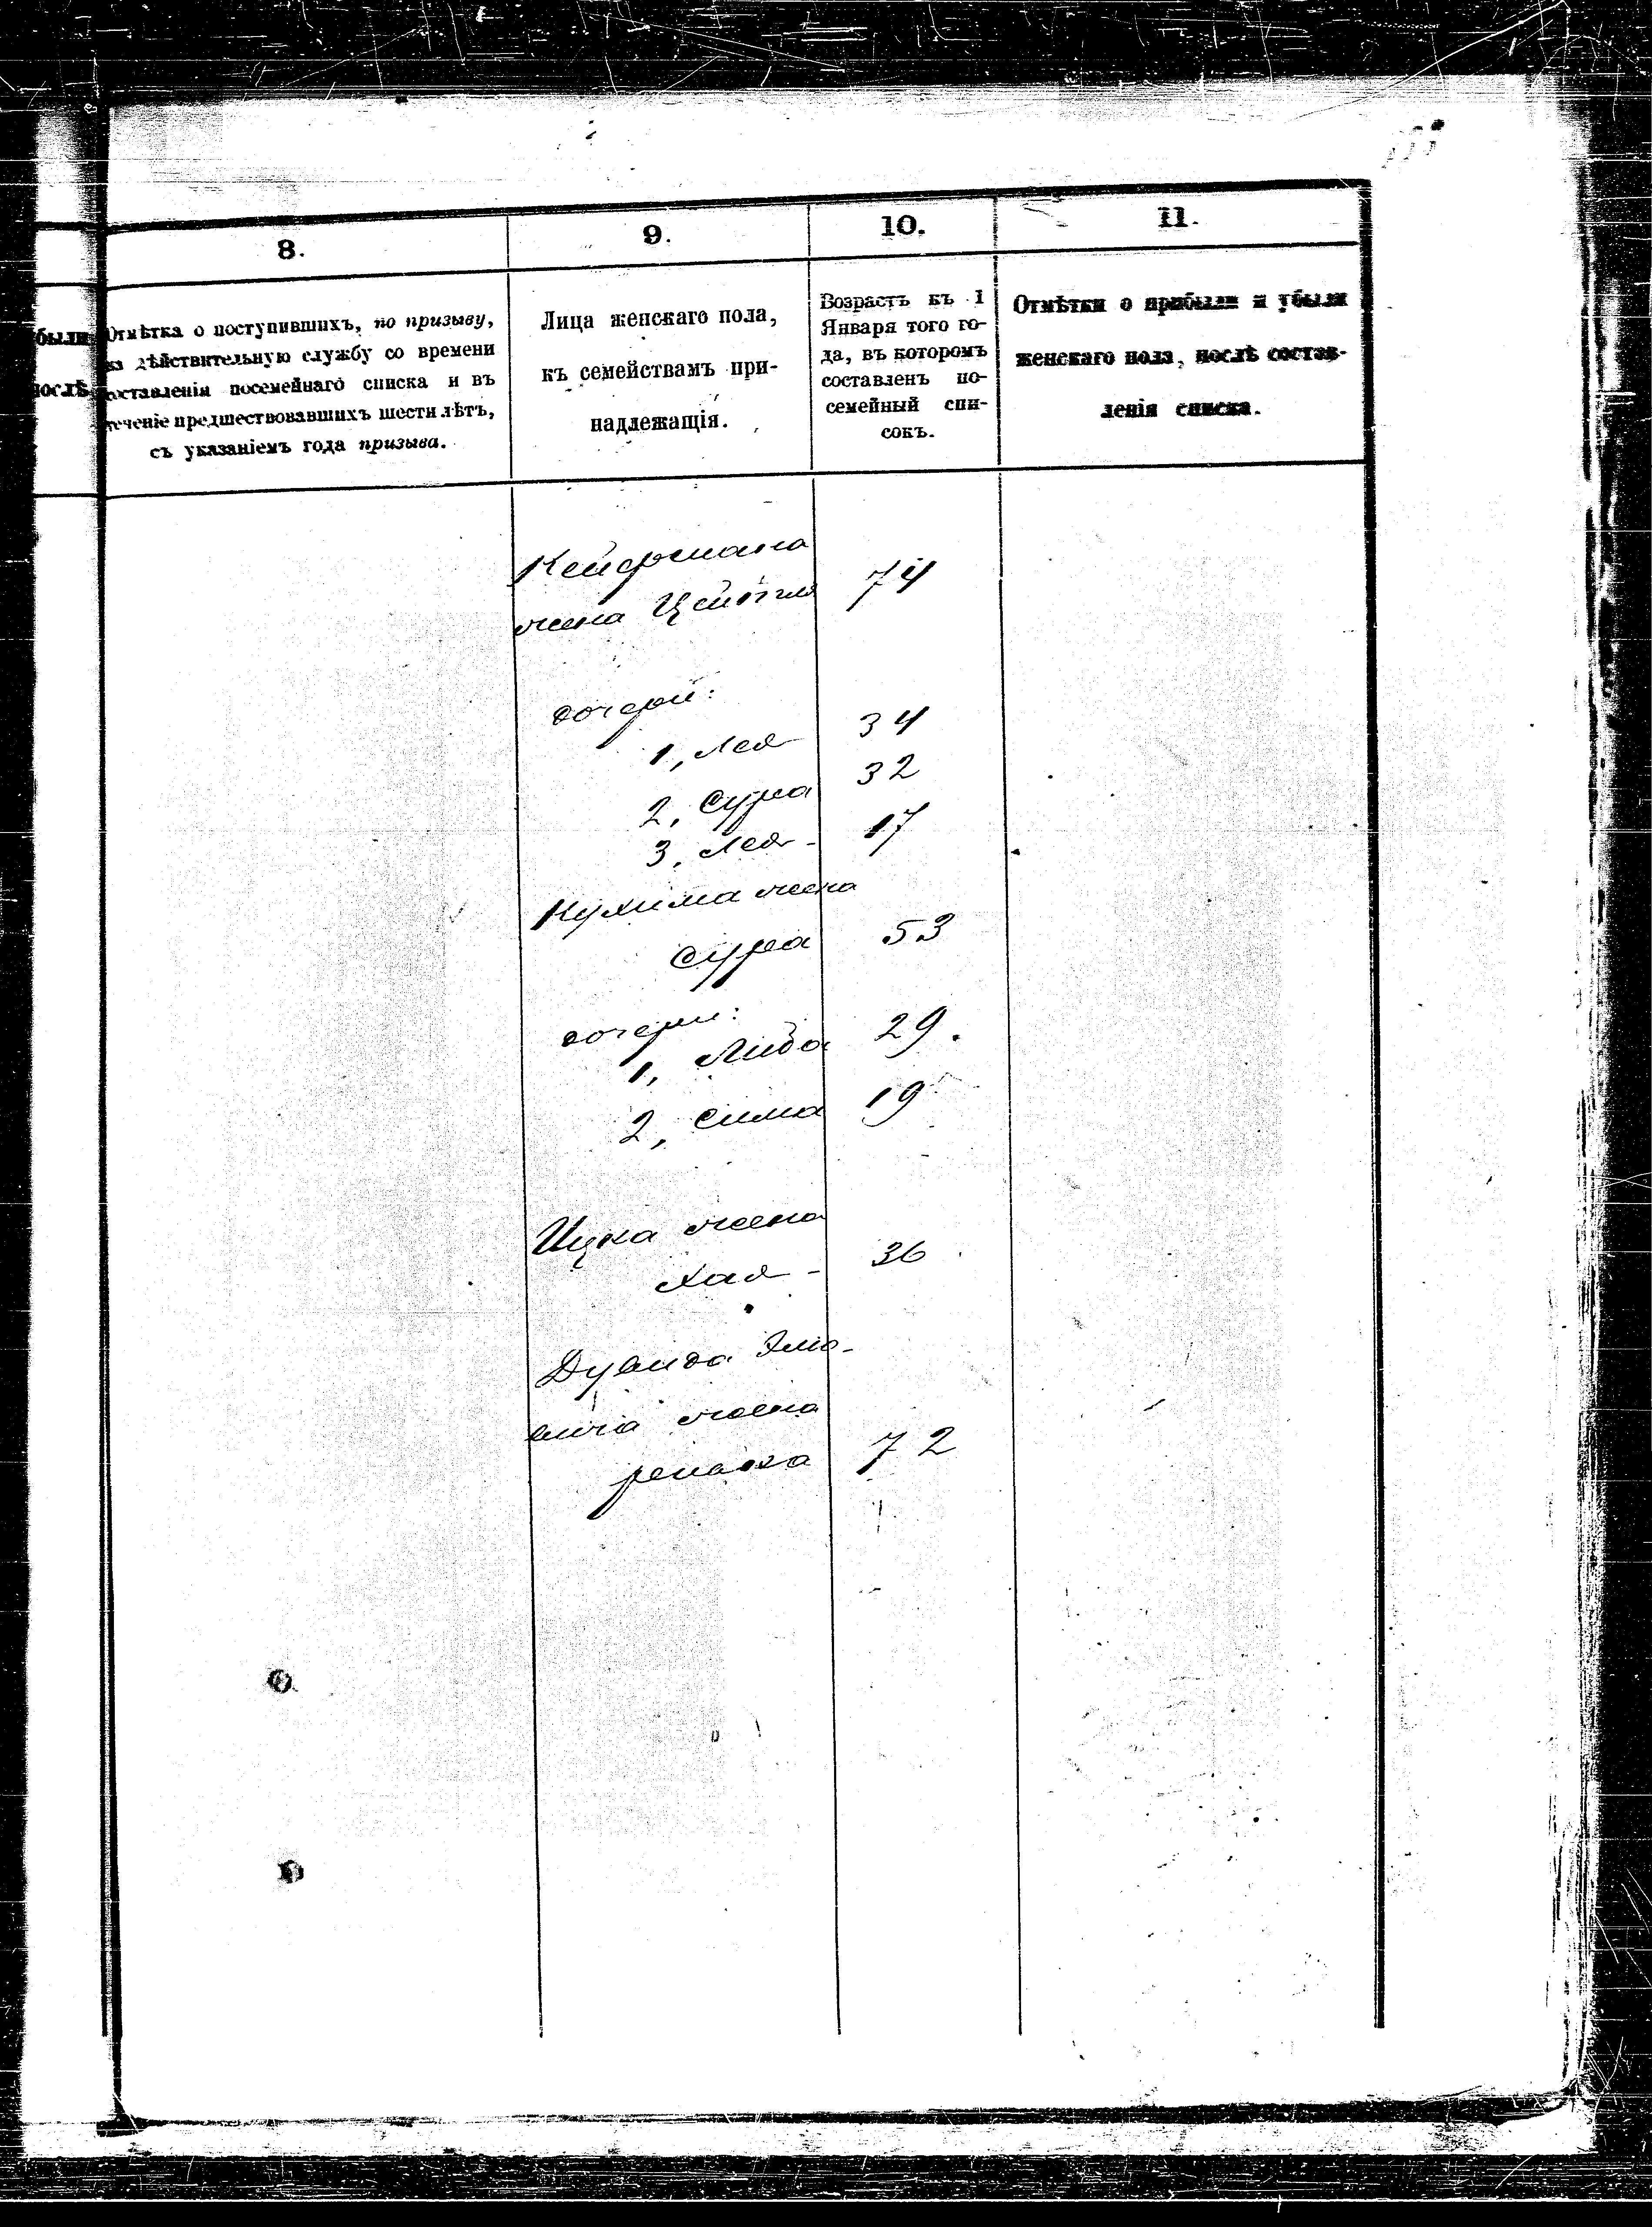 8.
9.
10.
11.
были
послѣ
Отмѣтка о поступившихъ, по призыву,
на дѣйствительную службу со времени
составленія посемейнаго списка и въ
теченіе предшествовавшихъ шести лѣтъ,
съ указаніемъ года призыва.
Лица женскаго пола,
къ семействамъ при-
надлежащія.
Возрастъ къ 1
Января того го-
да, въ которомъ
составленъ по-
семейный спи-
сокъ.
Отмѣтки о прибыли и убыли
женскаго пола, послѣ состав-
ленія списка.
жена 74
дочери:
1, Лея 34
2, Сура 32
3, Лея - 17
жена
Сура 53
дочери:
1, Либа 29.
2, Сима 19
Ицка жена
Хая - 36
Дувида
вича жена
72